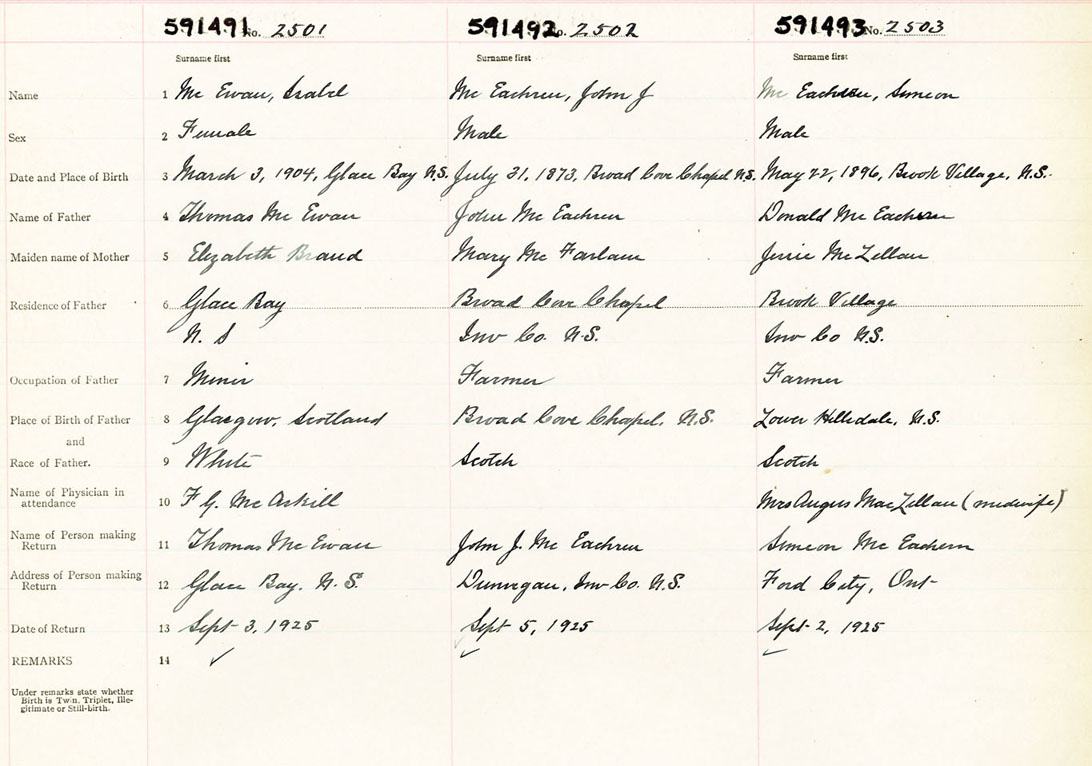 591491 No. 2501 591492 No. 2502 591493 No. 2503
Surname first Surname first Surname first
Name 1 Mc Ewan, Isabel Mc Eachren, John J Mc Eachren, Simeon
Sex 2 Female Male Male
Date and Place of Birth 3 March 3, 1904, Glace Bay N.S. July 31, 1873, Broad Cove Chapel N.S. May 22, 1896, Brook Village, N.S.
Name of Father 4 Thomas Mc Ewan John Mc Eachren Donald Mc Eachren
Maiden name of Mother 5 Elizabeth Braud Mary Mc Farlane Jessie McLellan
Residence of Father 6 Glace Bay Broad Cove Chapel Brook Village
N. S Inv Co. N.S. Inv Co N.S.
Occupation of Father 7 Miner Farmer Farmer
Place of Birth of Father 8 Glasgow, Scotland Broad Cove Chapel, N.S. Lower Hillsdale, N.S.
and
Race of Father. 9 White Scotch Scotch
Name of Physician in
attendance 10 F G. Mc Askill Mrs Angus MacLellan (midwife)
Name of Person making
Return 11 Thomas Mc Ewan John J. Mc Eachren Simeon Mc Eachern
Address of Person making
Return 12 Glace Bay. N. S. Dunvegan, Inv Co. N.S. Ford City, Ont
Date of Return 13 Sept 3, 1925 Sept 5, 1925 Sept 2, 1925
REMARKS 14 ✓ ✓ ✓
Under remarks state whether
Birth is Twin, Triplet, Ille-
gitimate or Still-birth.